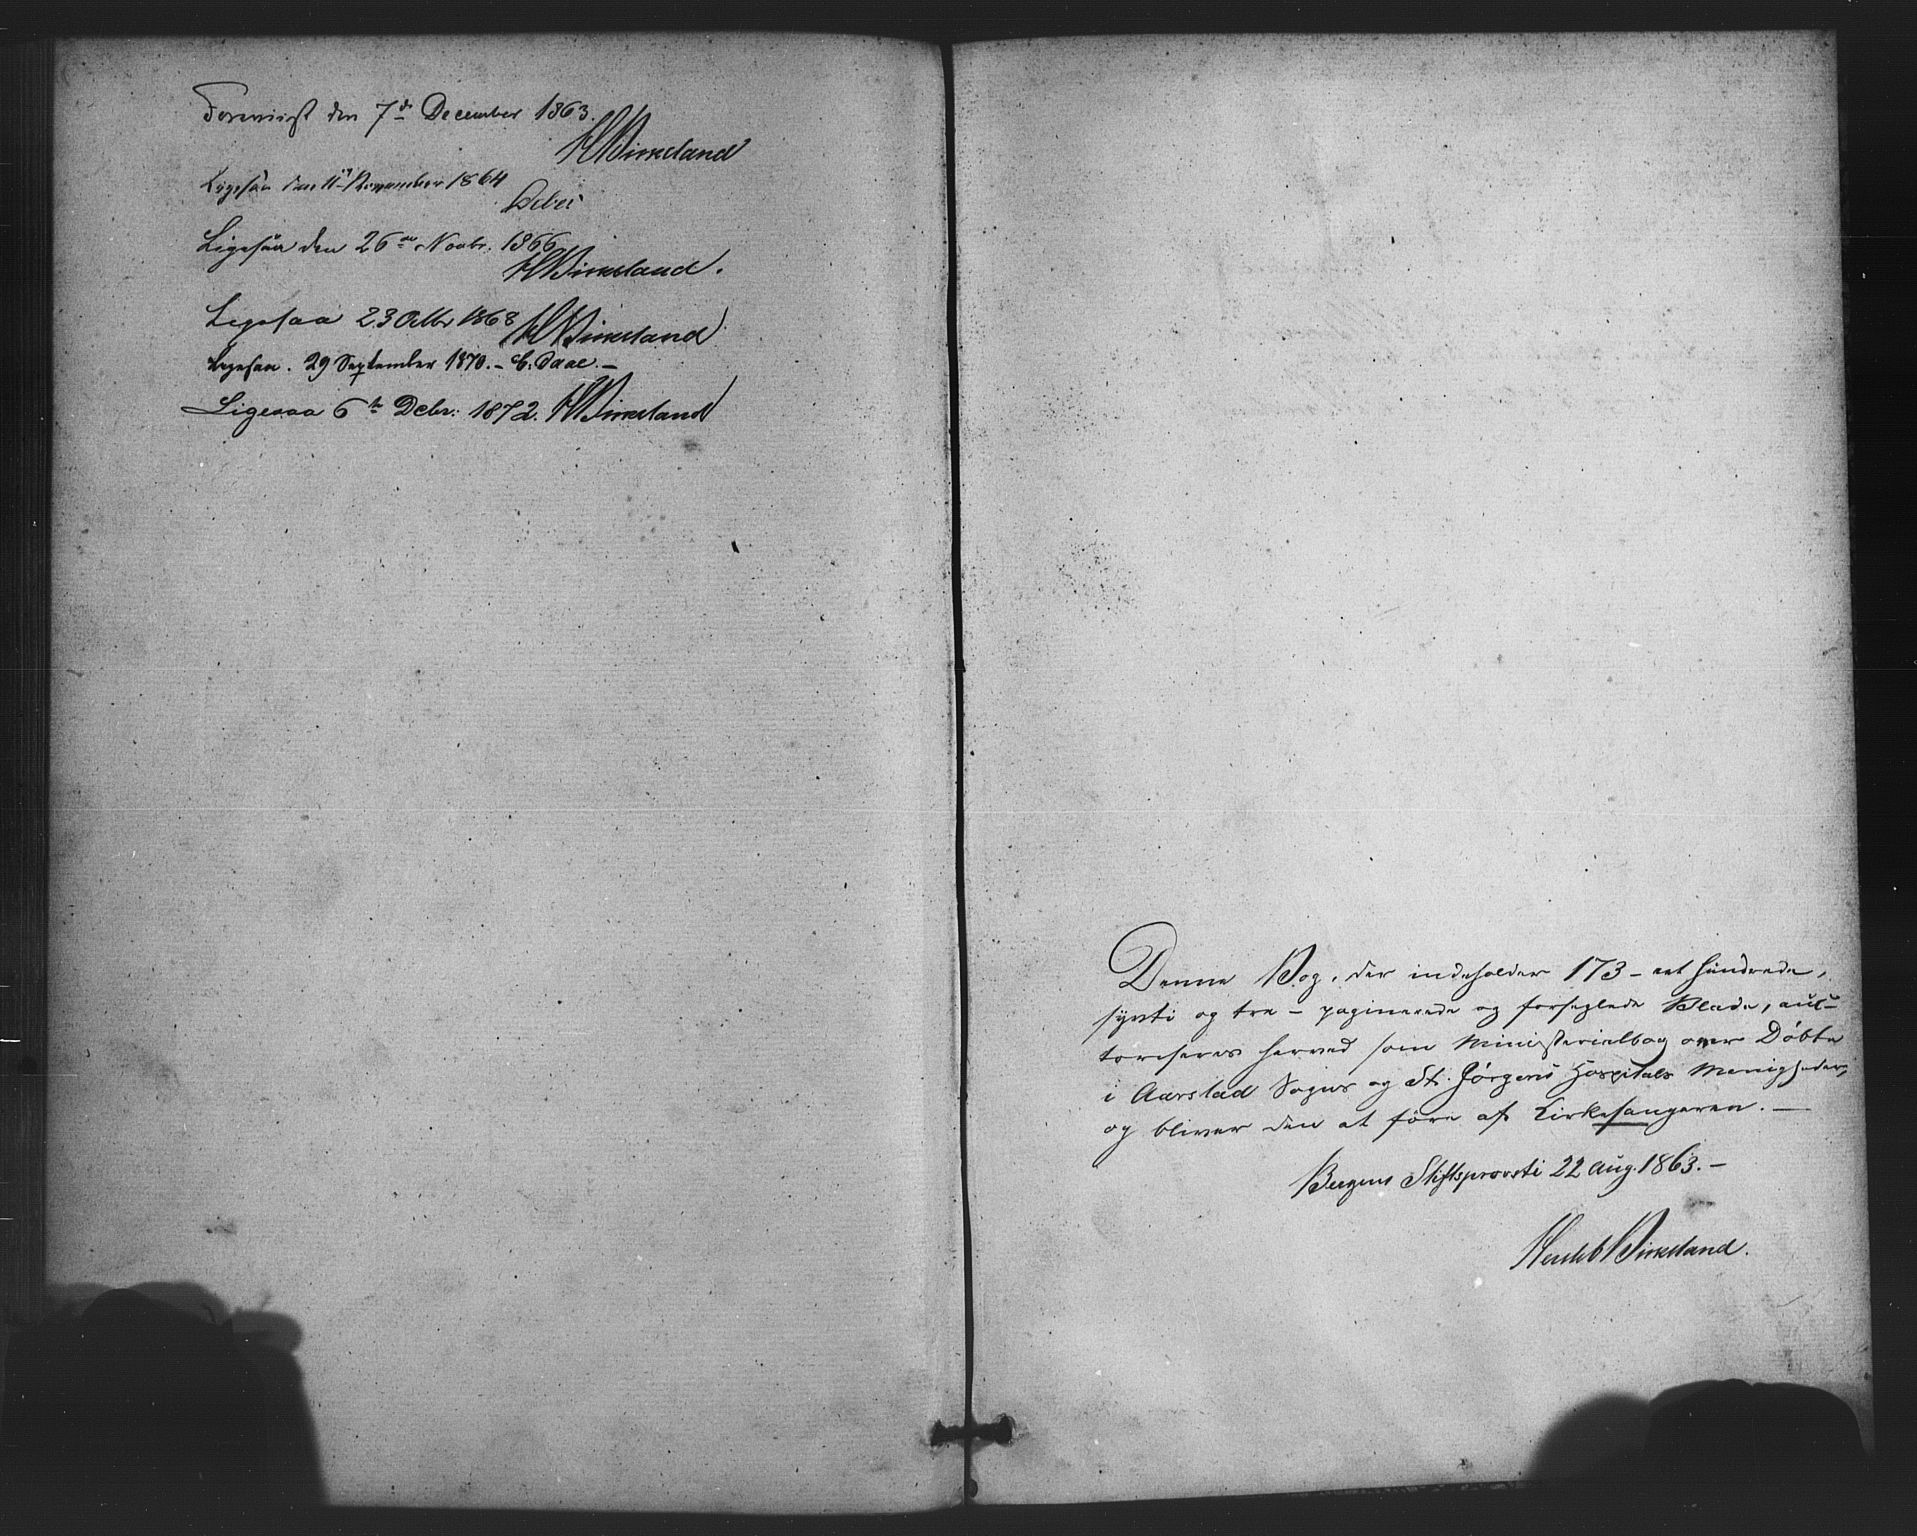 Foreviist den 7de December 1863.
HBirkeland
Ligesaa den 11te November 1864
Ligesaa den 26de Novbr. 1866
HBirkeland.
Ligesaa 23 Octbr 1868 HBirkeland
Ligesaa. 29 September 1870. – C. Daae. –
Ligesaa 6te Decbr. 1872. HBirkeland
Denne Bog, der indeholder 173 – eet hundrede,
syvti og tre – paginerede og forseglede Blade, au-
toriseres herved som Ministerialbog over Døbte
i Aarstad Sogns og St. Jørgens Hospitals Menigheder,
og bliver den at føre af Kirkesangeren. –
Bergens Stiftsprovsti 22 Aug. 1863. –
Birkeland.